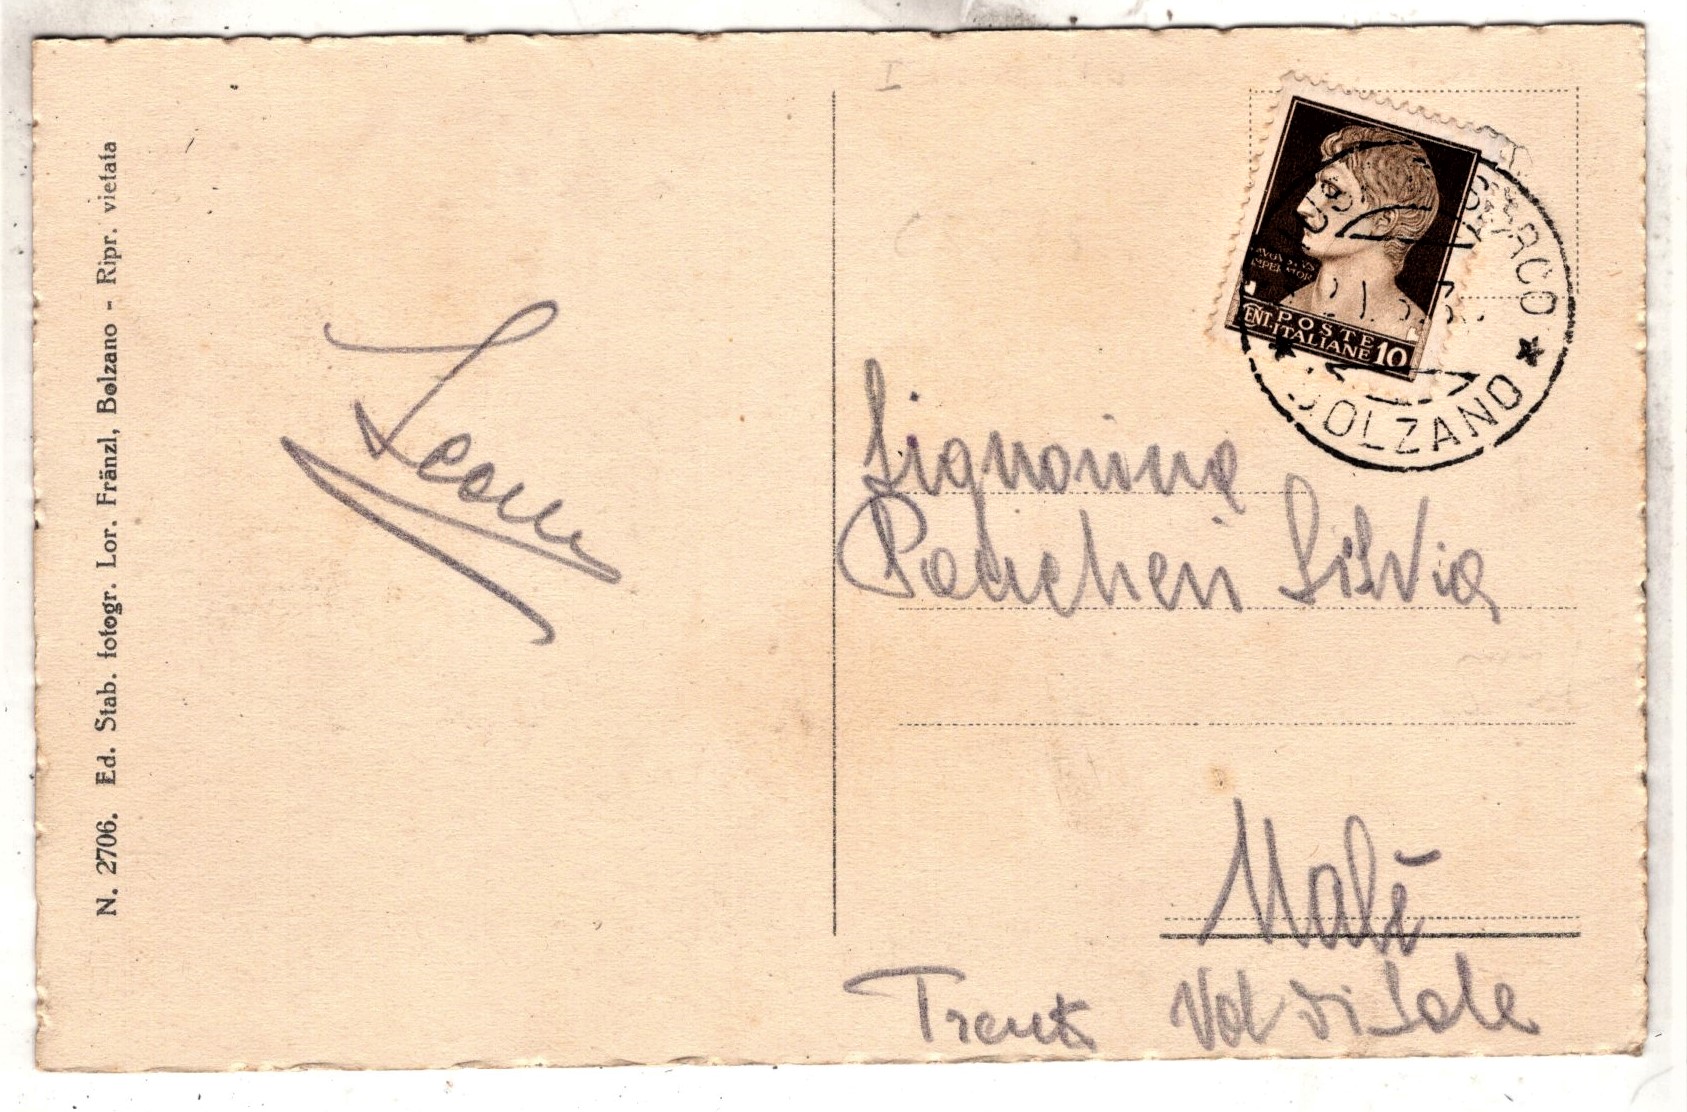 N. 2706. Ed. Stab. fotogr. Lor. Fränzl, Bolzano - Ripr. vietata
AVGVSTVS
IMPERATOR
CENT. POSTE
ITALIANE 10
BOLZANO
Signorina
Pancheri Silvia
Malè
Trento Val di Sole